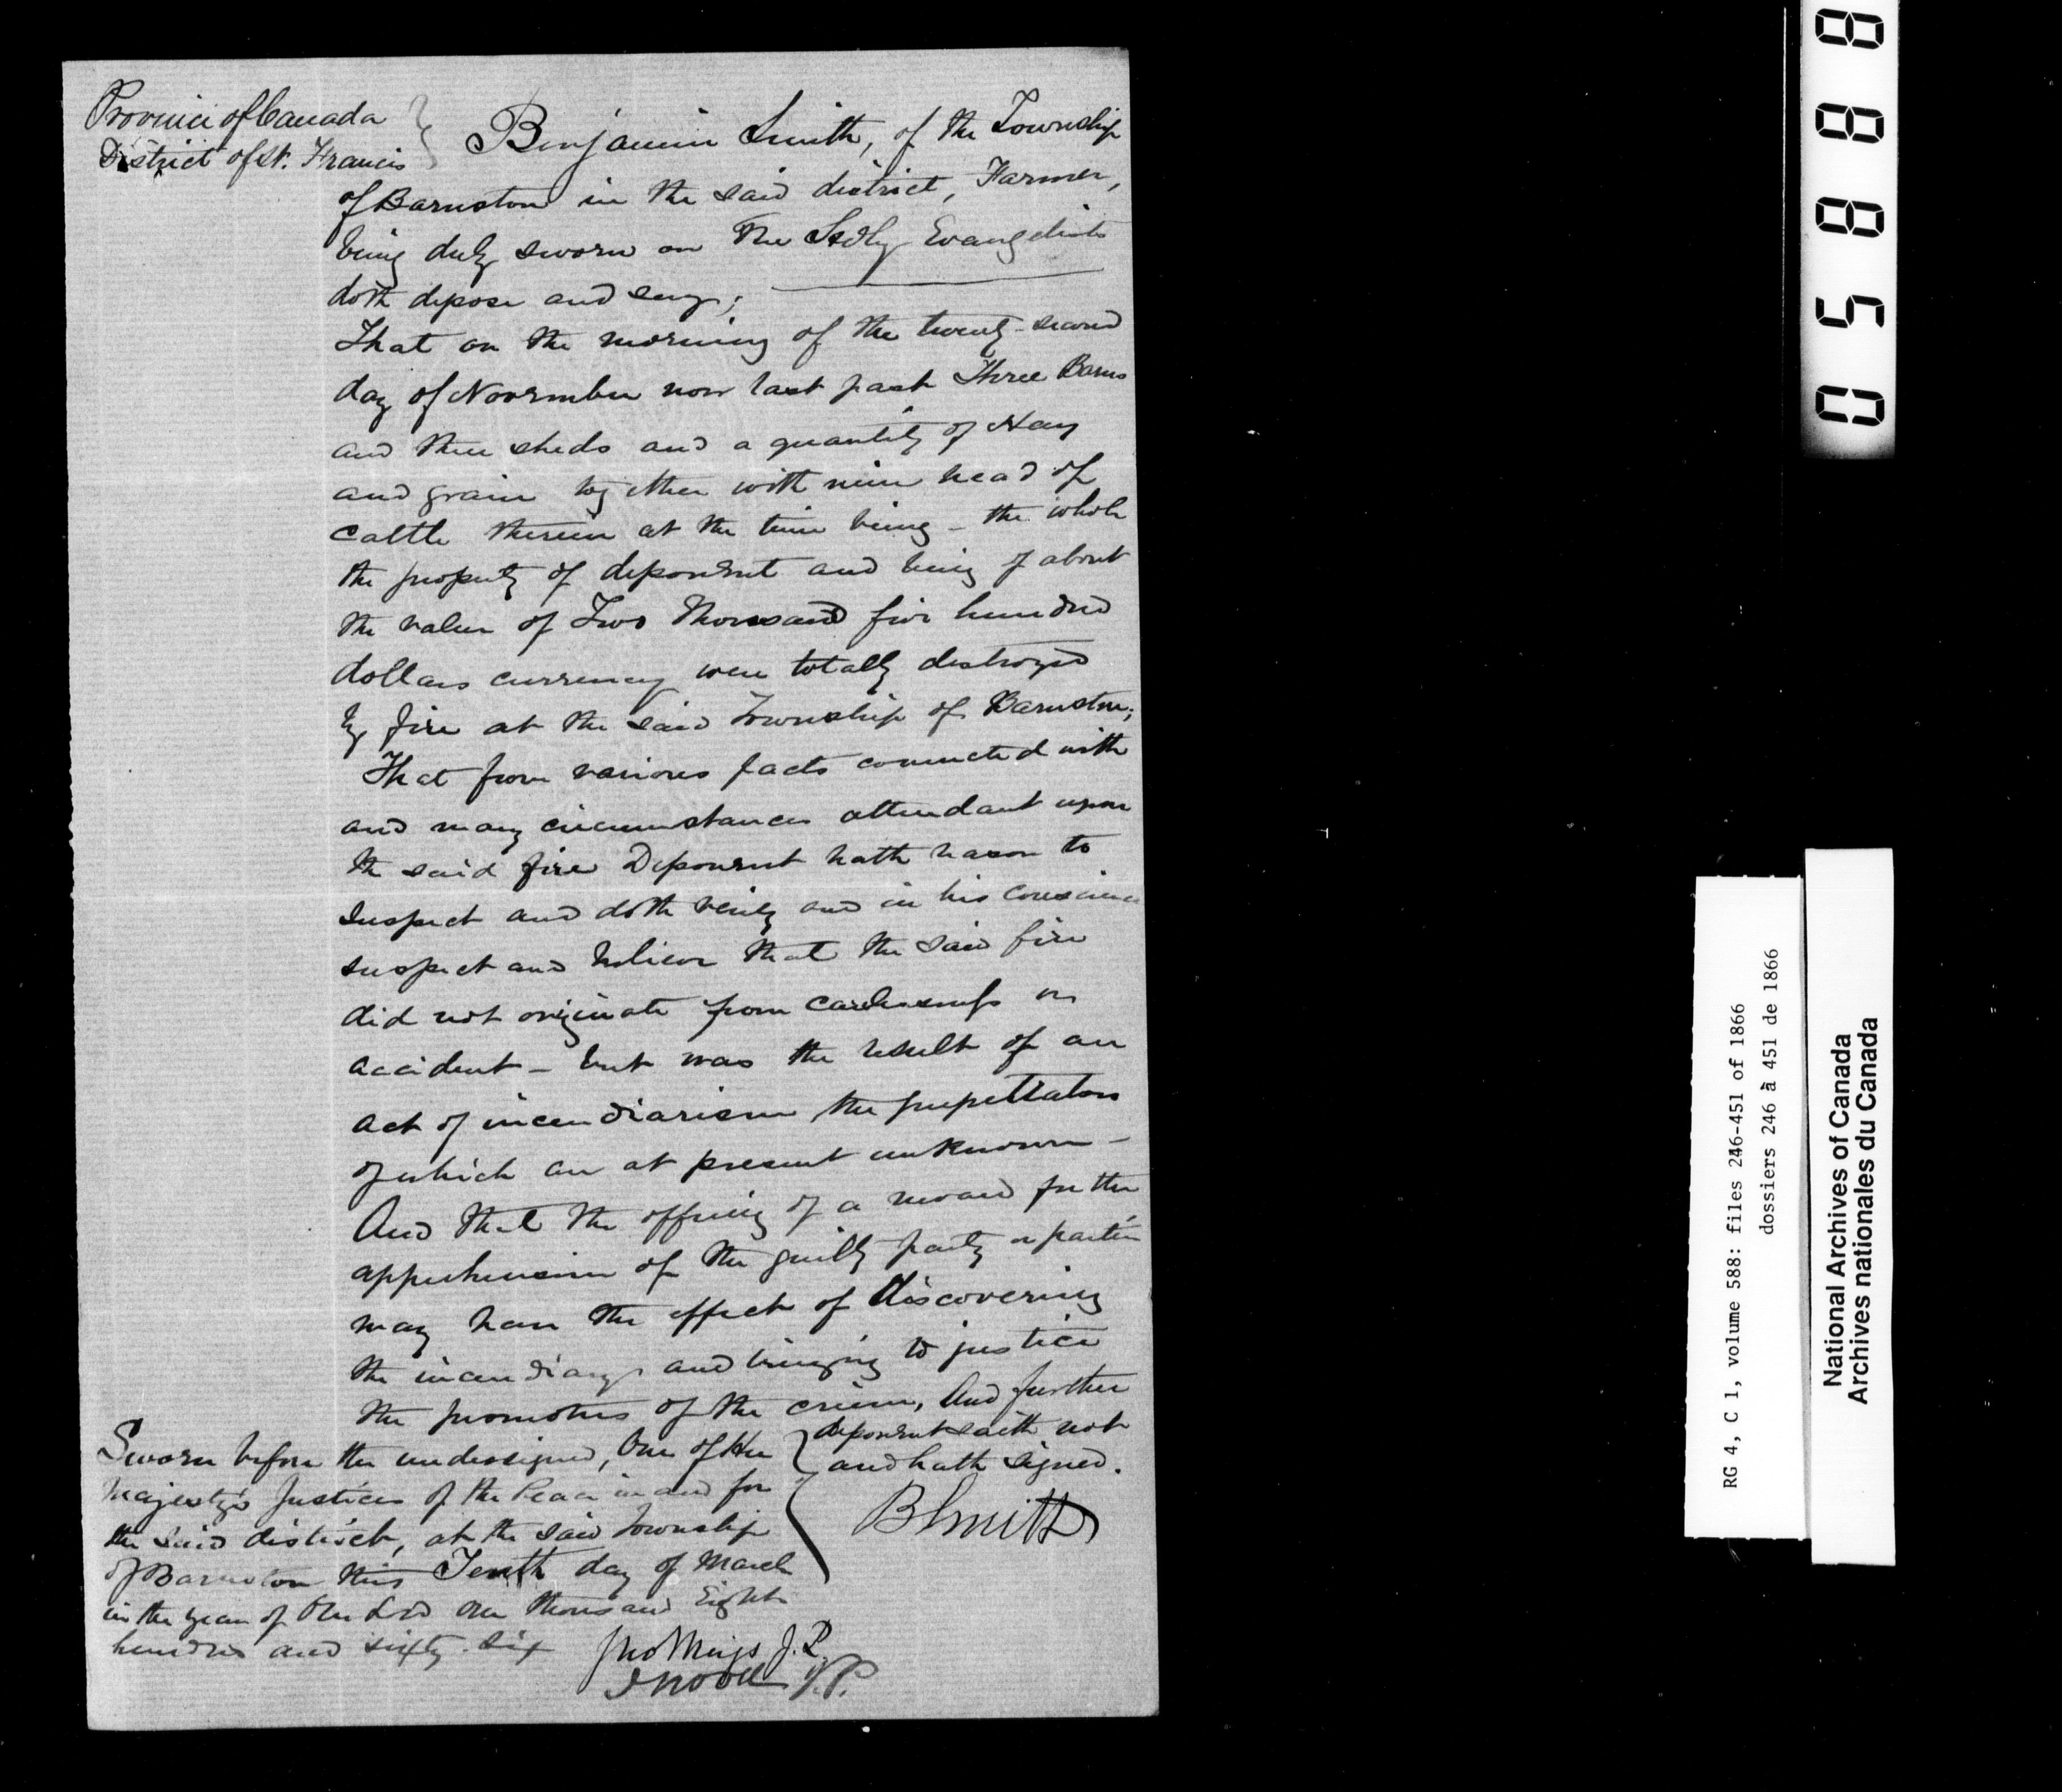 Province of Canada
District of St. Francis
Benjamin Smith, of the Township
of Barnston in the said district, Farmer,
being duly sworn on the Holy Evangelists
doth depose and say;
That on the morning of the twenty-second
day of November now last past Three Barns
and three sheds and a quantity of Hay
and grain together with nine head of
cattle therein at the time being - the whole
the property of deponent and being of about
the value of Two Thousand five hundred
dollars currency were totally destroyed
by fire at the said Township of Barnston;
That from various facts connected with
and many circumstances attendant upon
the said fire Deponent hath reason to
suspect and doth verily and in his conscience
suspect and believe that the said fire
did not originate from carelessness or
accident - but was the result of an
act of incendiarism the perpettators
of which are at present unknown -
And that the offering of a reward for the
apprehension of the guilty party or parties
may have the effect of discovering
the incendiary and bringing to justice
the promoters of the crime, And further
deponent saith not
and hath signed.
B Smith
Sworn before the undersigned, One of Her
Majesty's Justices of the Peace in and for
the said district, at the said Township
of Barnston this Tenth day of March
in the year of Our Lord One thousand Eight
hundred and sixty-six
Jno Meigs J.P.
J.P.
0 5 8 8 8
RG 4, C 1, volume 588: files 246-451 of 1866
dossiers 246 à 451 de 1866
National Archives of Canada
Archives nationales du Canada